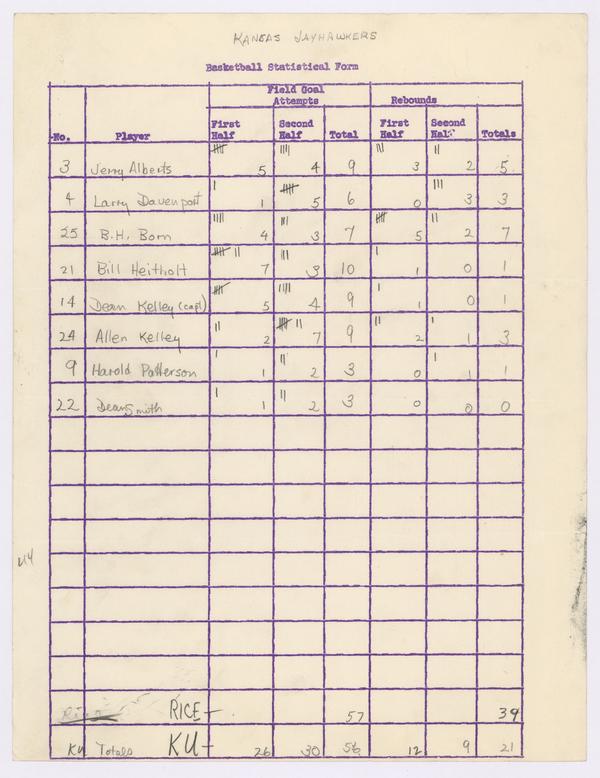 KANSAS JAYHAWKERS
Basketball Statistical Form
Field Goal Attempts Rebounds
No. Player First Half Second Half Total First Half Second Half Totals
3 Jerry Alberts 5 4 9 3 2 5
4 Larry Davenport 1 5 6 0 3 3
25 B.H. Born 4 3 7 5 2 7
21 Bill Heitholt 7 3 10 1 0 1
14 Dean Kelley (capt) 5 4 9 1 0 1
24 Allen Kelley 2 7 9 2 1 3
9 Harold Patterson 1 2 3 0 1 1
22 Dean Smith 1 2 3 0 0 0
RICE- 57 39
KU Totals KU- 26 30 56 12 9 21